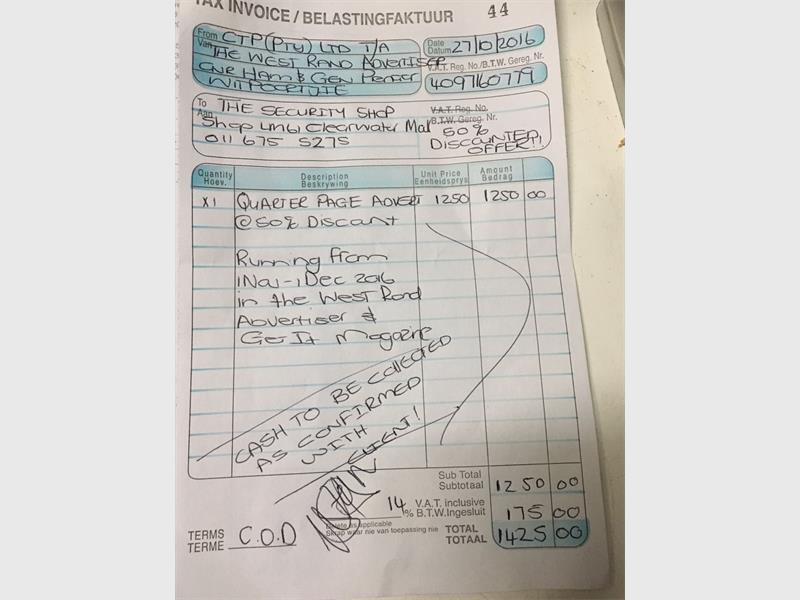 TAX INVOICE / BELASTINGFAKTUUR 44
From CTP (PTY) LTD T/A
Van THE WEST RAND ADVERTISER
CNR HAM & GEN PIENAAR
WITPOORTJIE
Date 27/10/2016
Datum
V.A.T. Reg. No./B.T.W. Gereg. Nr.
4097160779
To THE SECURITY SHOP
Aan Shop UM61 Clearwater Mal
011 675 5275
V.A.T. Reg. No.
B.T.W. Gereg. Nr.
50%
DISCOUNTED
OFFER!!
Quantity Description Unit Price Amount
Hoev. Beskrywing Eenheidsprys Bedrag
X1 QUARTER PAGE ADVERT 1250 1250 00
@ 50% DISCOUNT
Running from
1 Nov - 1 Dec 2016
in the West Rand
Advertiser &
Get It Magazine
CASH TO BE COLLECTED
AS CONFIRMED
WITH
CLIENT!
Sub Total
Subtotaal 1250 00
14 % V.A.T. inclusive
B.T.W. Ingesluit 175 00
Delete as applicable
Skrap waar nie van toepassing nie
TERMS C.O.D
TERME
TOTAL
TOTAAL 1425 00